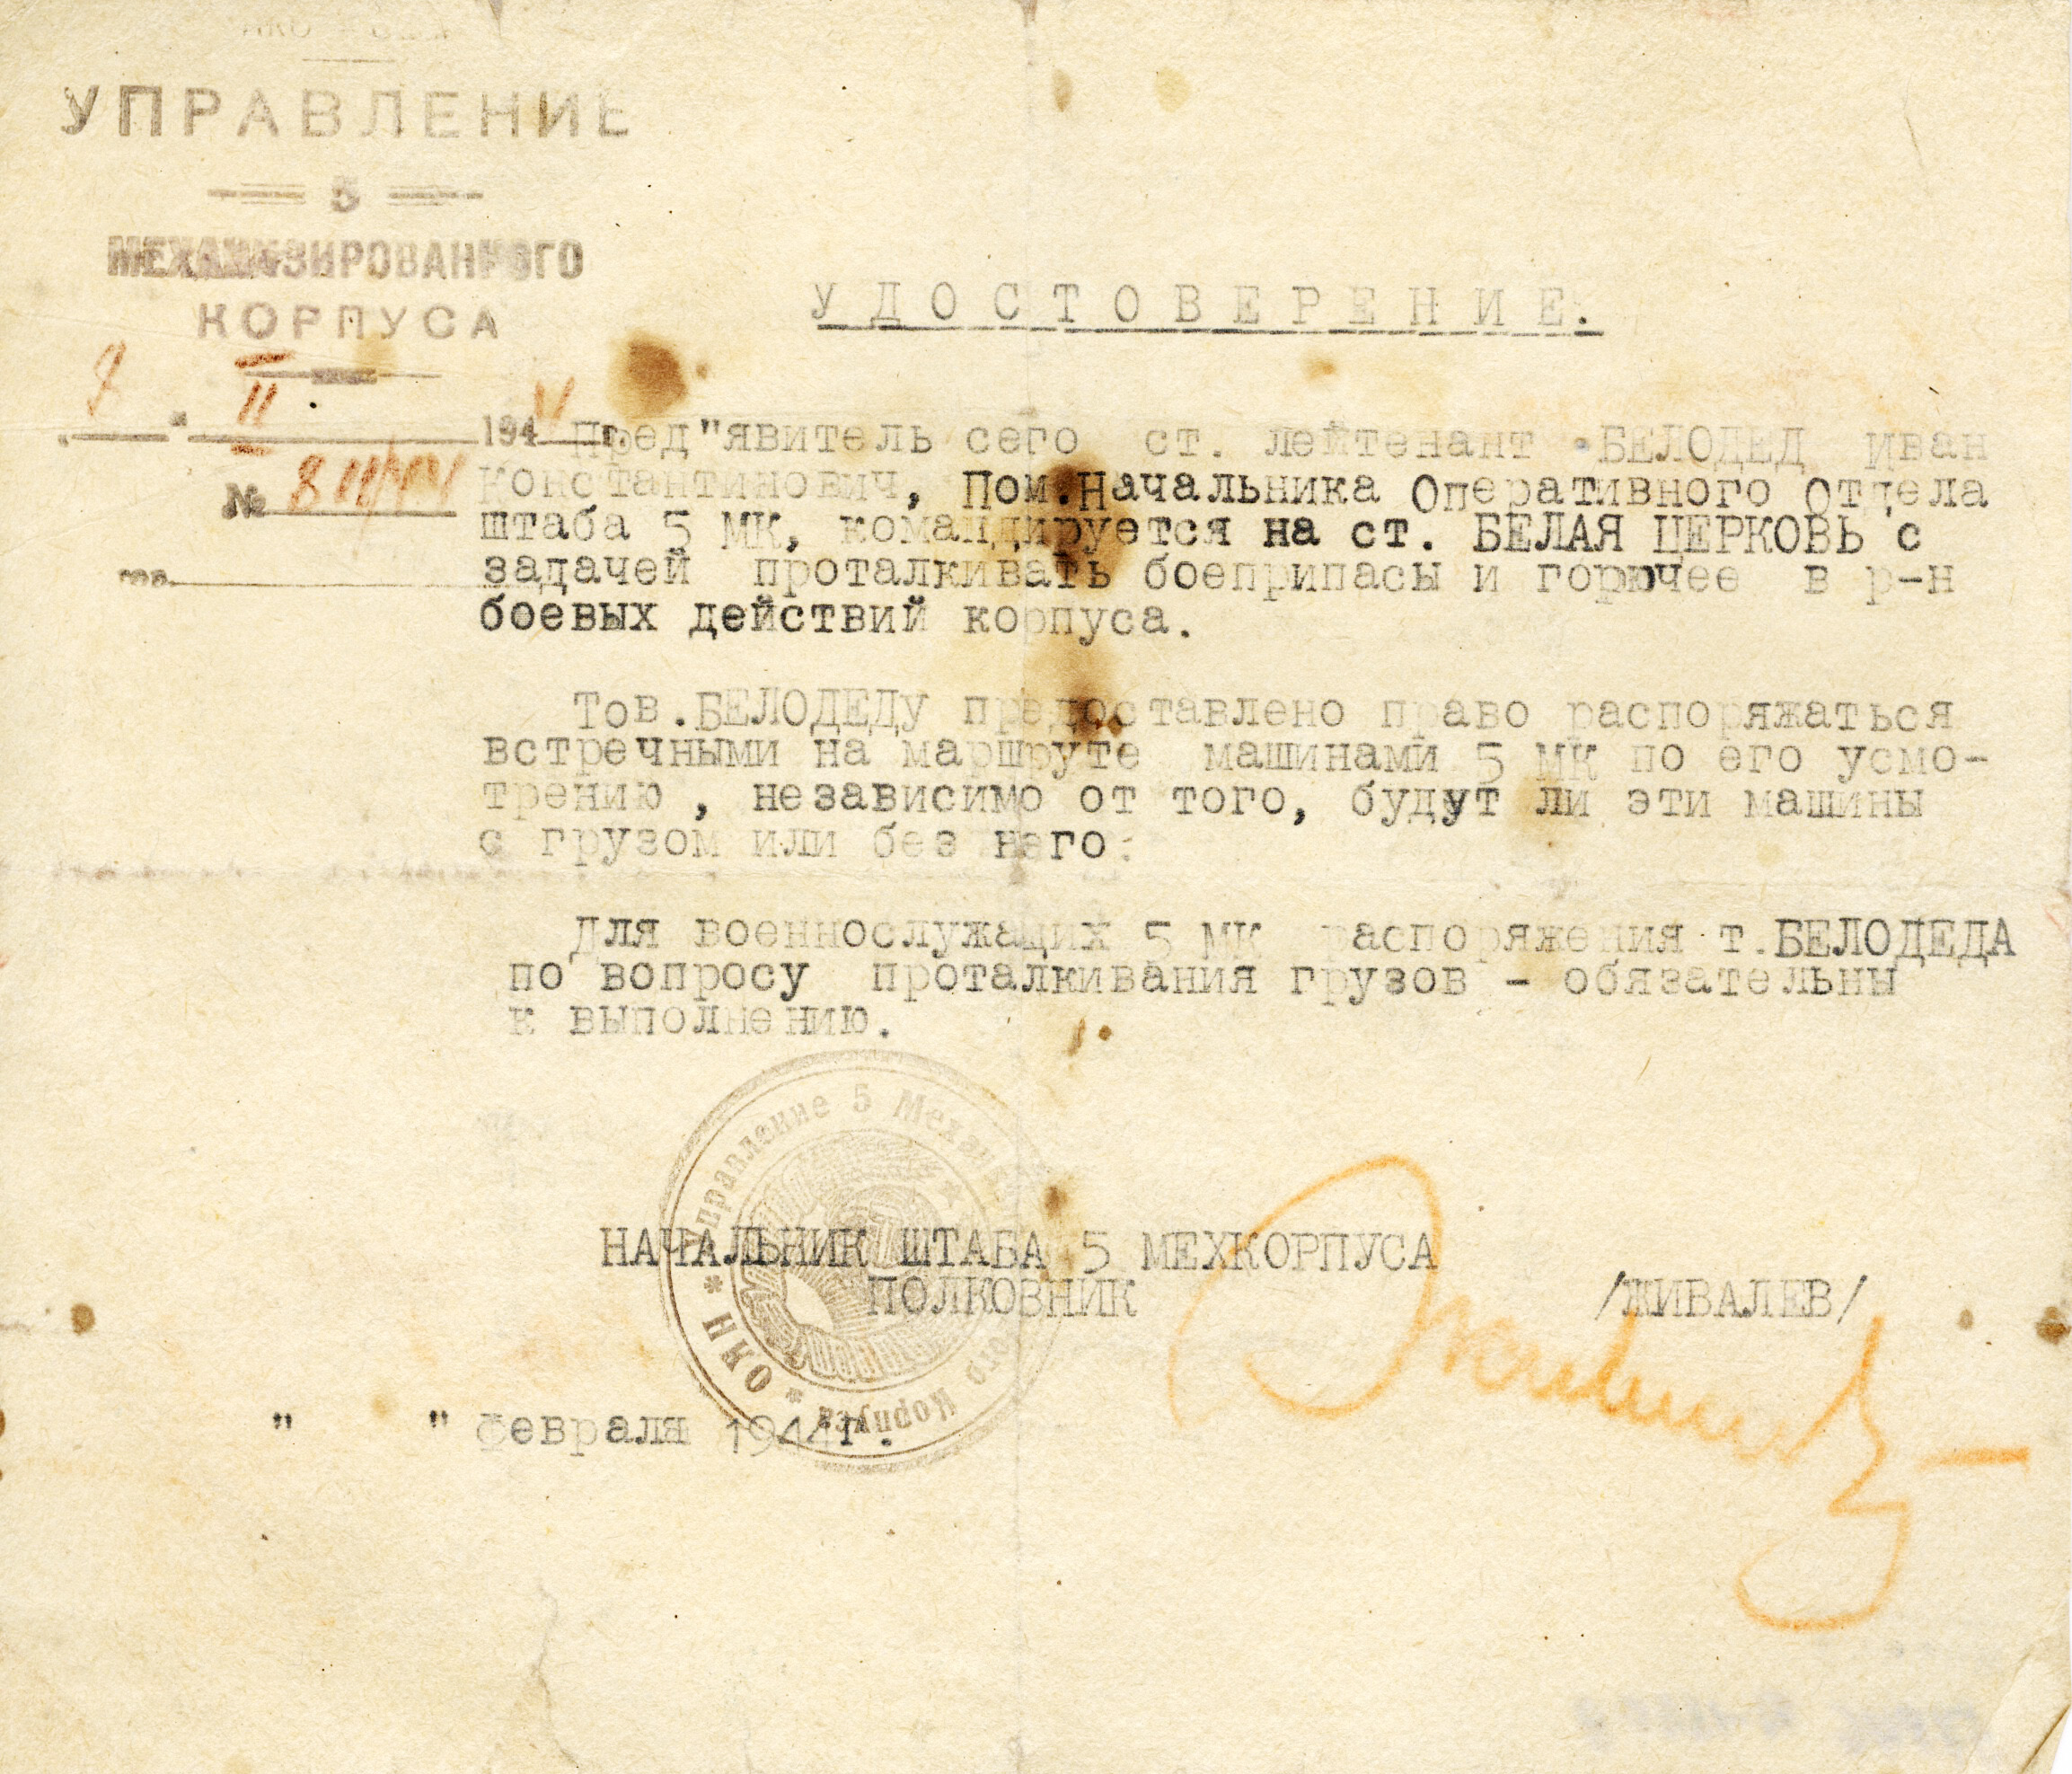 УПРАВЛЕНИЕ
5
МЕХАНИЗИРОВАННОГО
КОРПУСА
УДОСТОВЕРЕНИЕ.
II 194 г.
№
Пред"явитель сего ст. лейтенант БЕЛОДЕД Иван
Константинович, Пом.Начальника Оперативного Отдела
штаба 5 МК, командируется на ст. БЕЛАЯ ЦЕРКОВЬ с
задачей проталкивать боеприпасы и горючее в р-н
боевых действий корпуса.
Тов.БЕЛОДЕДУ предоставлено право распоряжаться
встречными на маршруте машинами 5 МК по его усмо-
трению , независимо от того, будут ли эти машины
с грузом или без него.
Для военнослужащих 5 МК распоряжения т.БЕЛОДЕДА
по вопросу проталкивания грузов - обязательны
к выполнению.
Управление 5 Механи ого Корпуса * НКО *
НАЧАЛЬНИК ШТАБА 5 МЕХКОРПУСА
ПОЛКОВНИК /ЖИВАЛЕВ/
" " февраля 1944г.